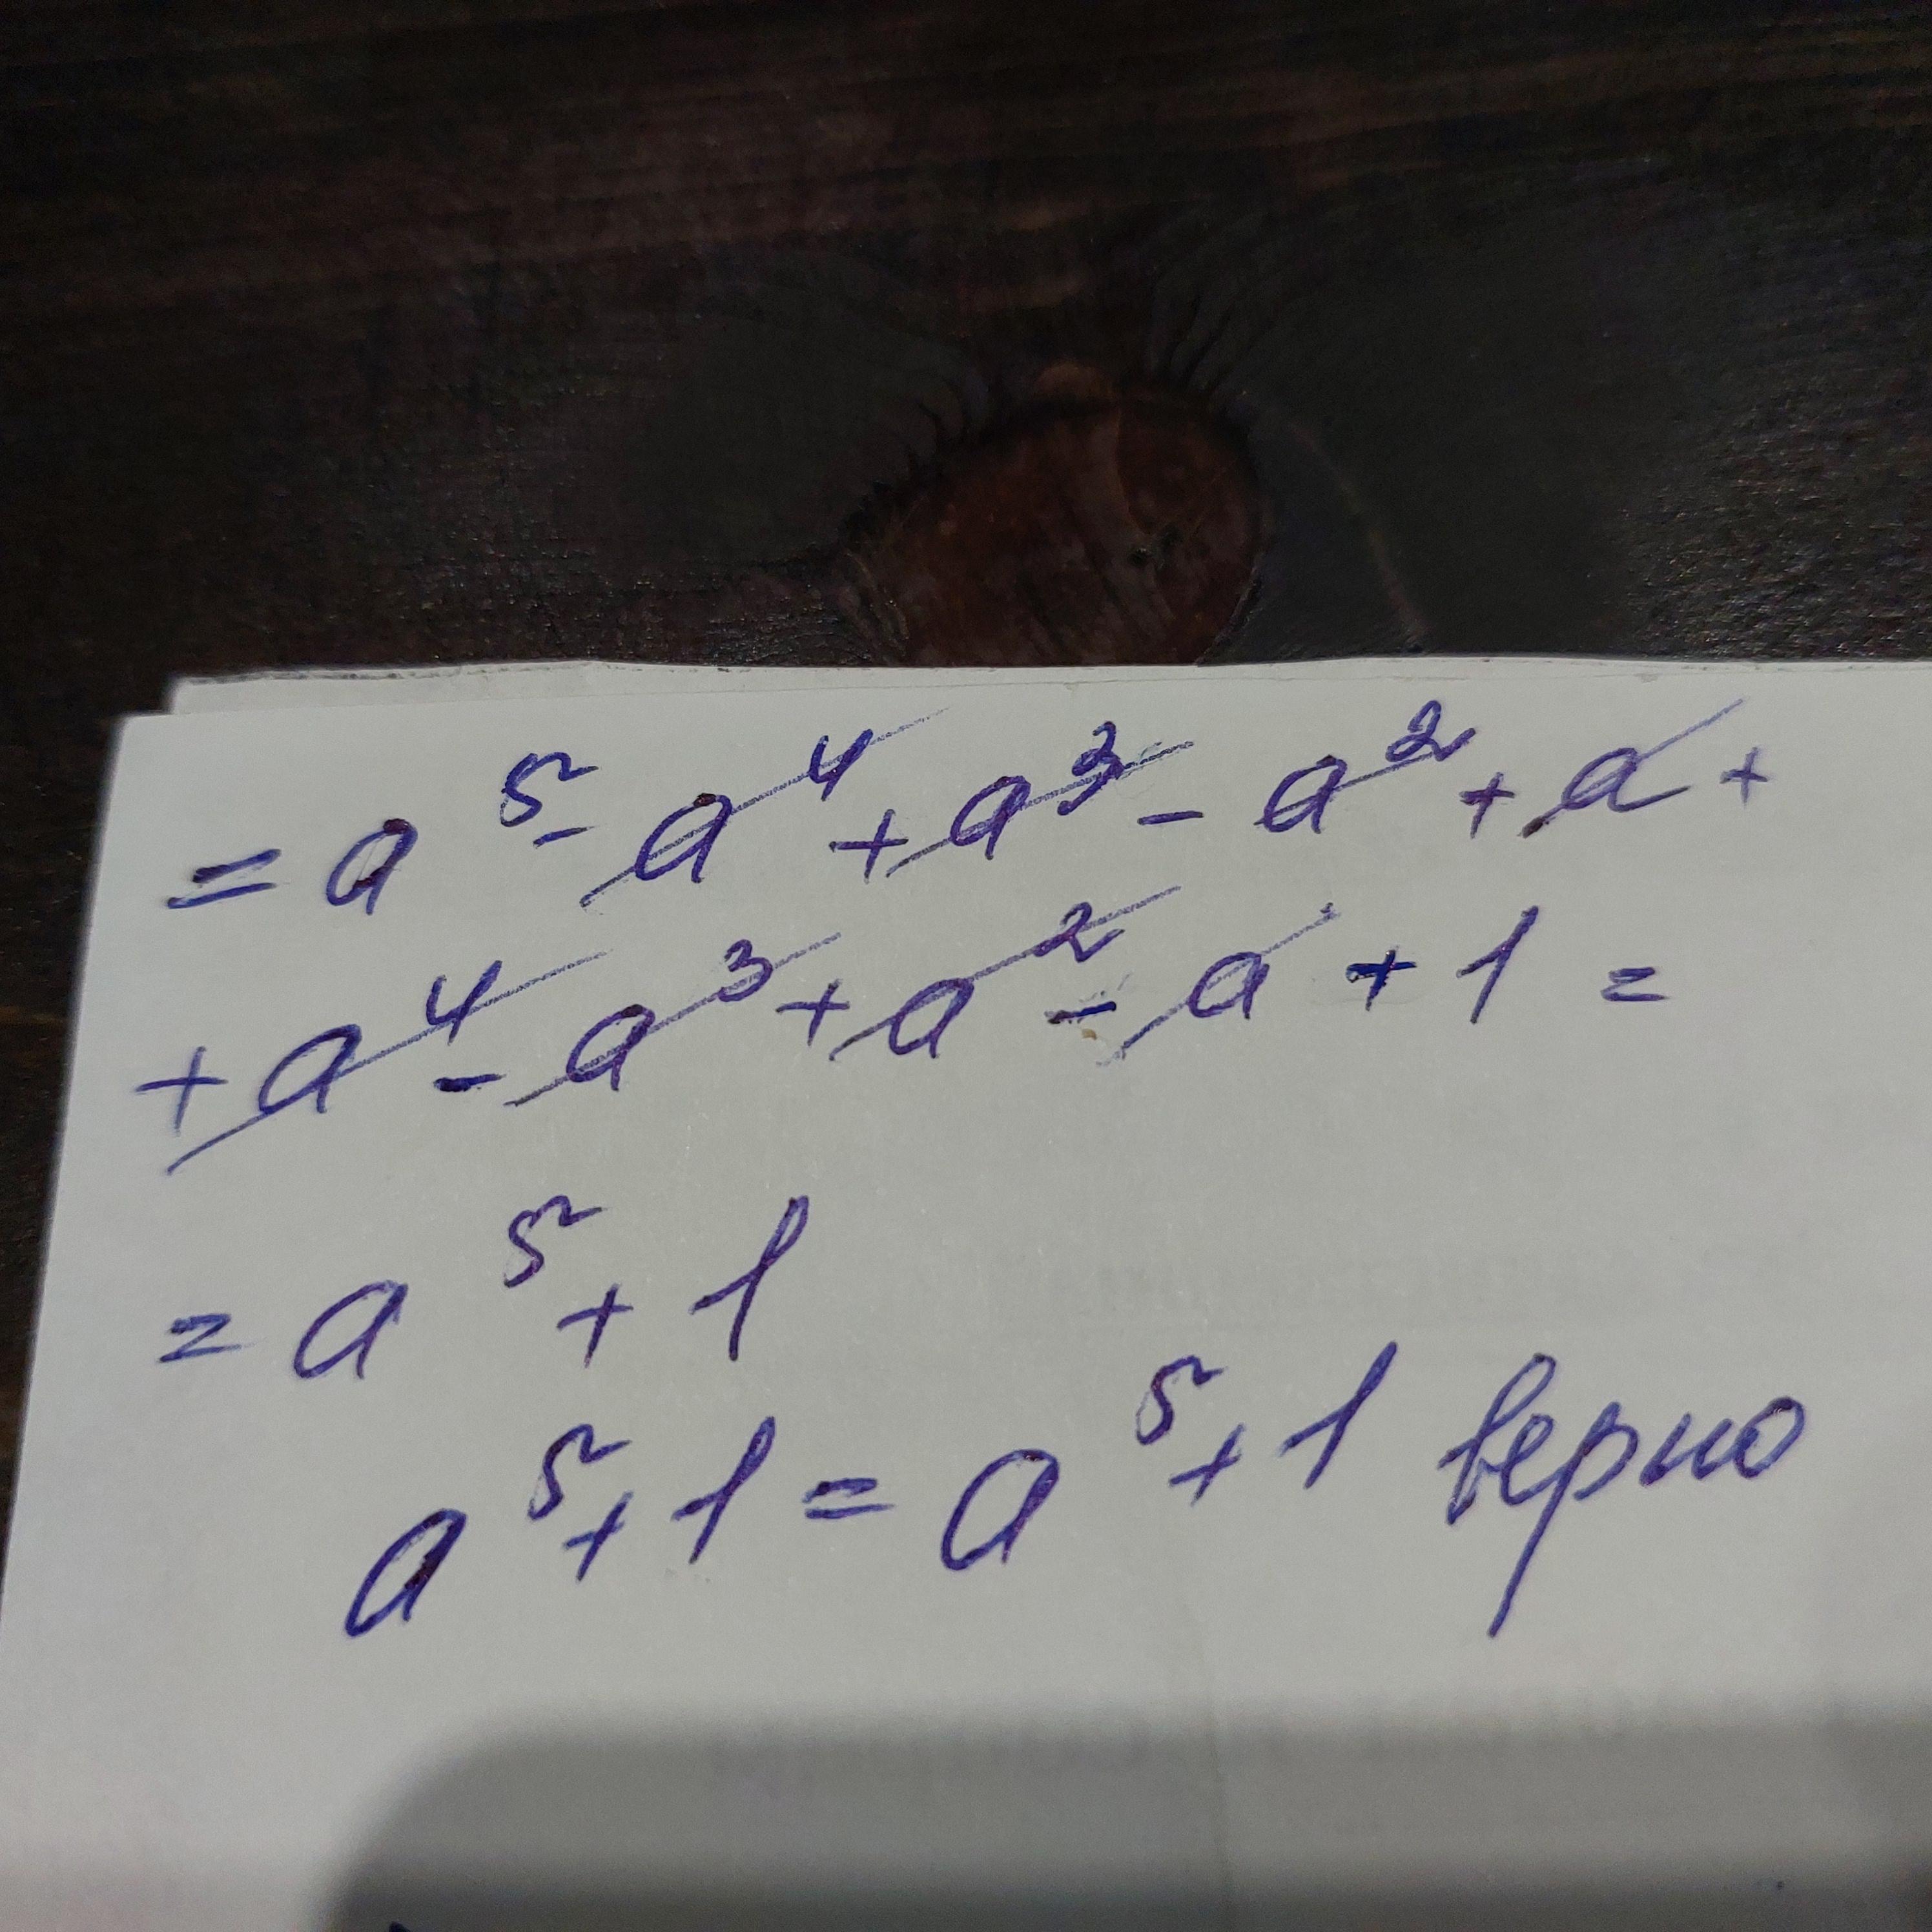 = a⁵ - a⁴ + a³ - a² + a +
+ a⁴ - a³ + a² - a + 1 =
= a⁵ + 1
a⁵ + 1 = a⁵ + 1 верно